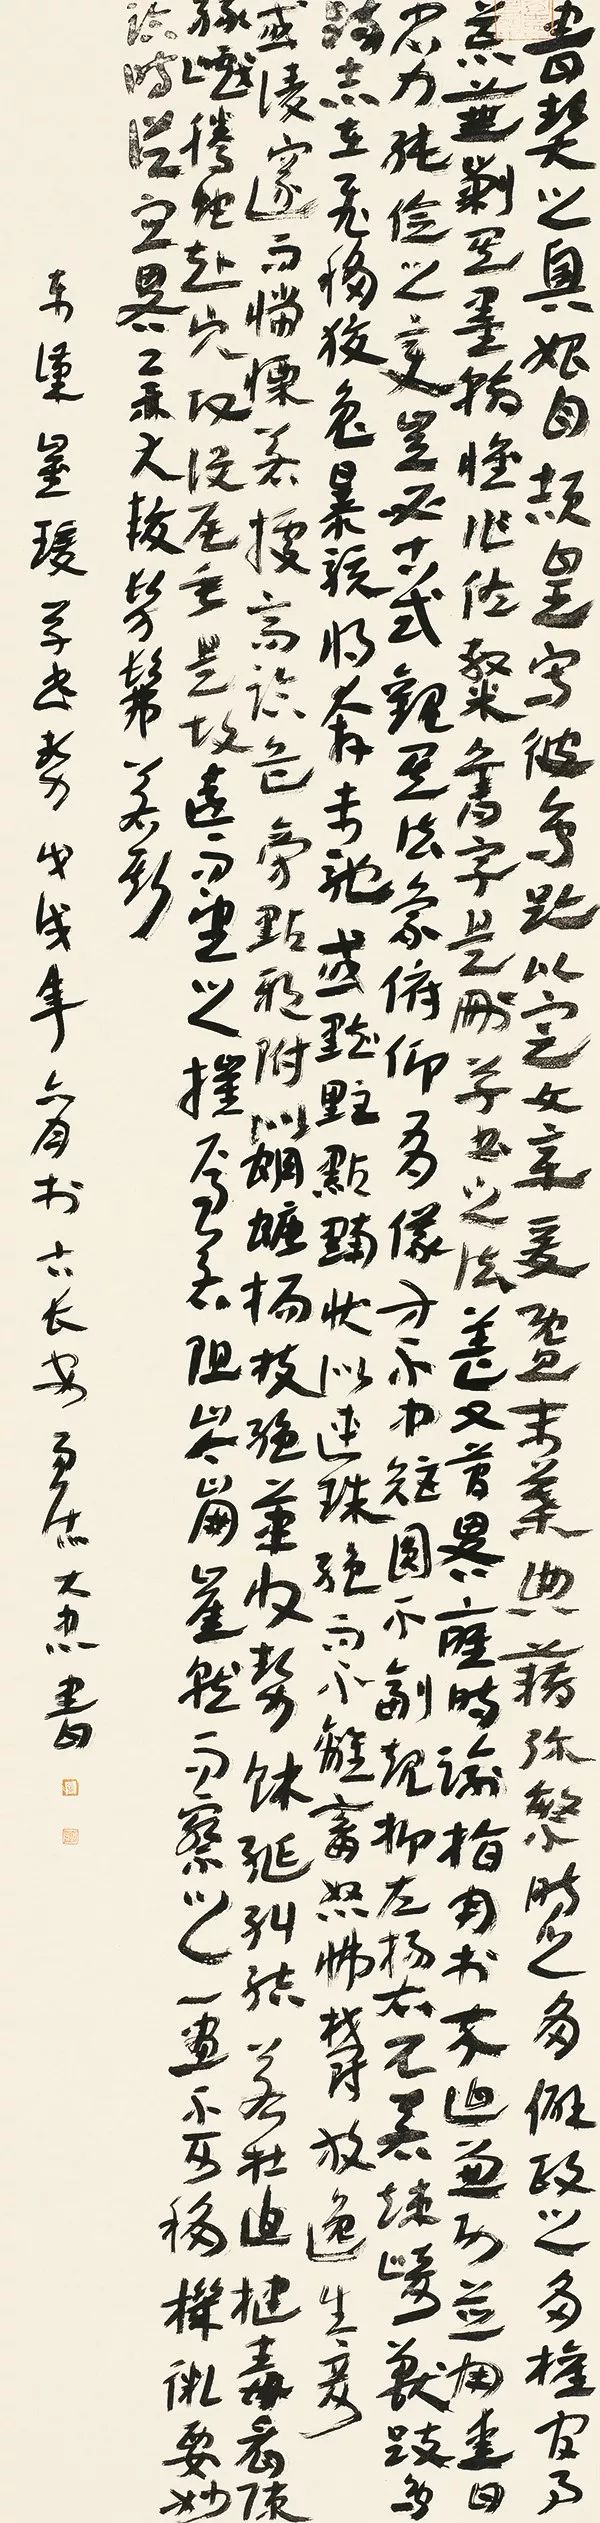 書契之興始自頡皇寫彼鳥跡以定文章爰暨末葉典藉弥繁時之多僻政之多權官事
荒蕪剿其墨翰惟作佐隸舊字是刪草書之法蓋又簡畧應時諭指用於卒迫兼功並用愛日
省力純儉之變豈必古式觀其法象俯仰有儀方不中矩圓不副規抑左揚右兀若竦崎獸跂鳥
跱志在飛移狡兔暴駭將奔未馳或點狀似連珠絕而不離畜怒怫鬱放逸生奇
或凌邃而惴慄若據高臨危旁點邪附似蜩螗揭枝絕筆收勢餘綖糾結若杜迫揵毒看隙
緣巇騰蛇赴穴頭沒尾垂是故遠而望之摧焉若阻岑崩崖就而察之一畫不可移機微要妙
臨時從宜畧舉大較髣髴若斯
東漢崔瑗草書勢戊戌年六月於古長安書